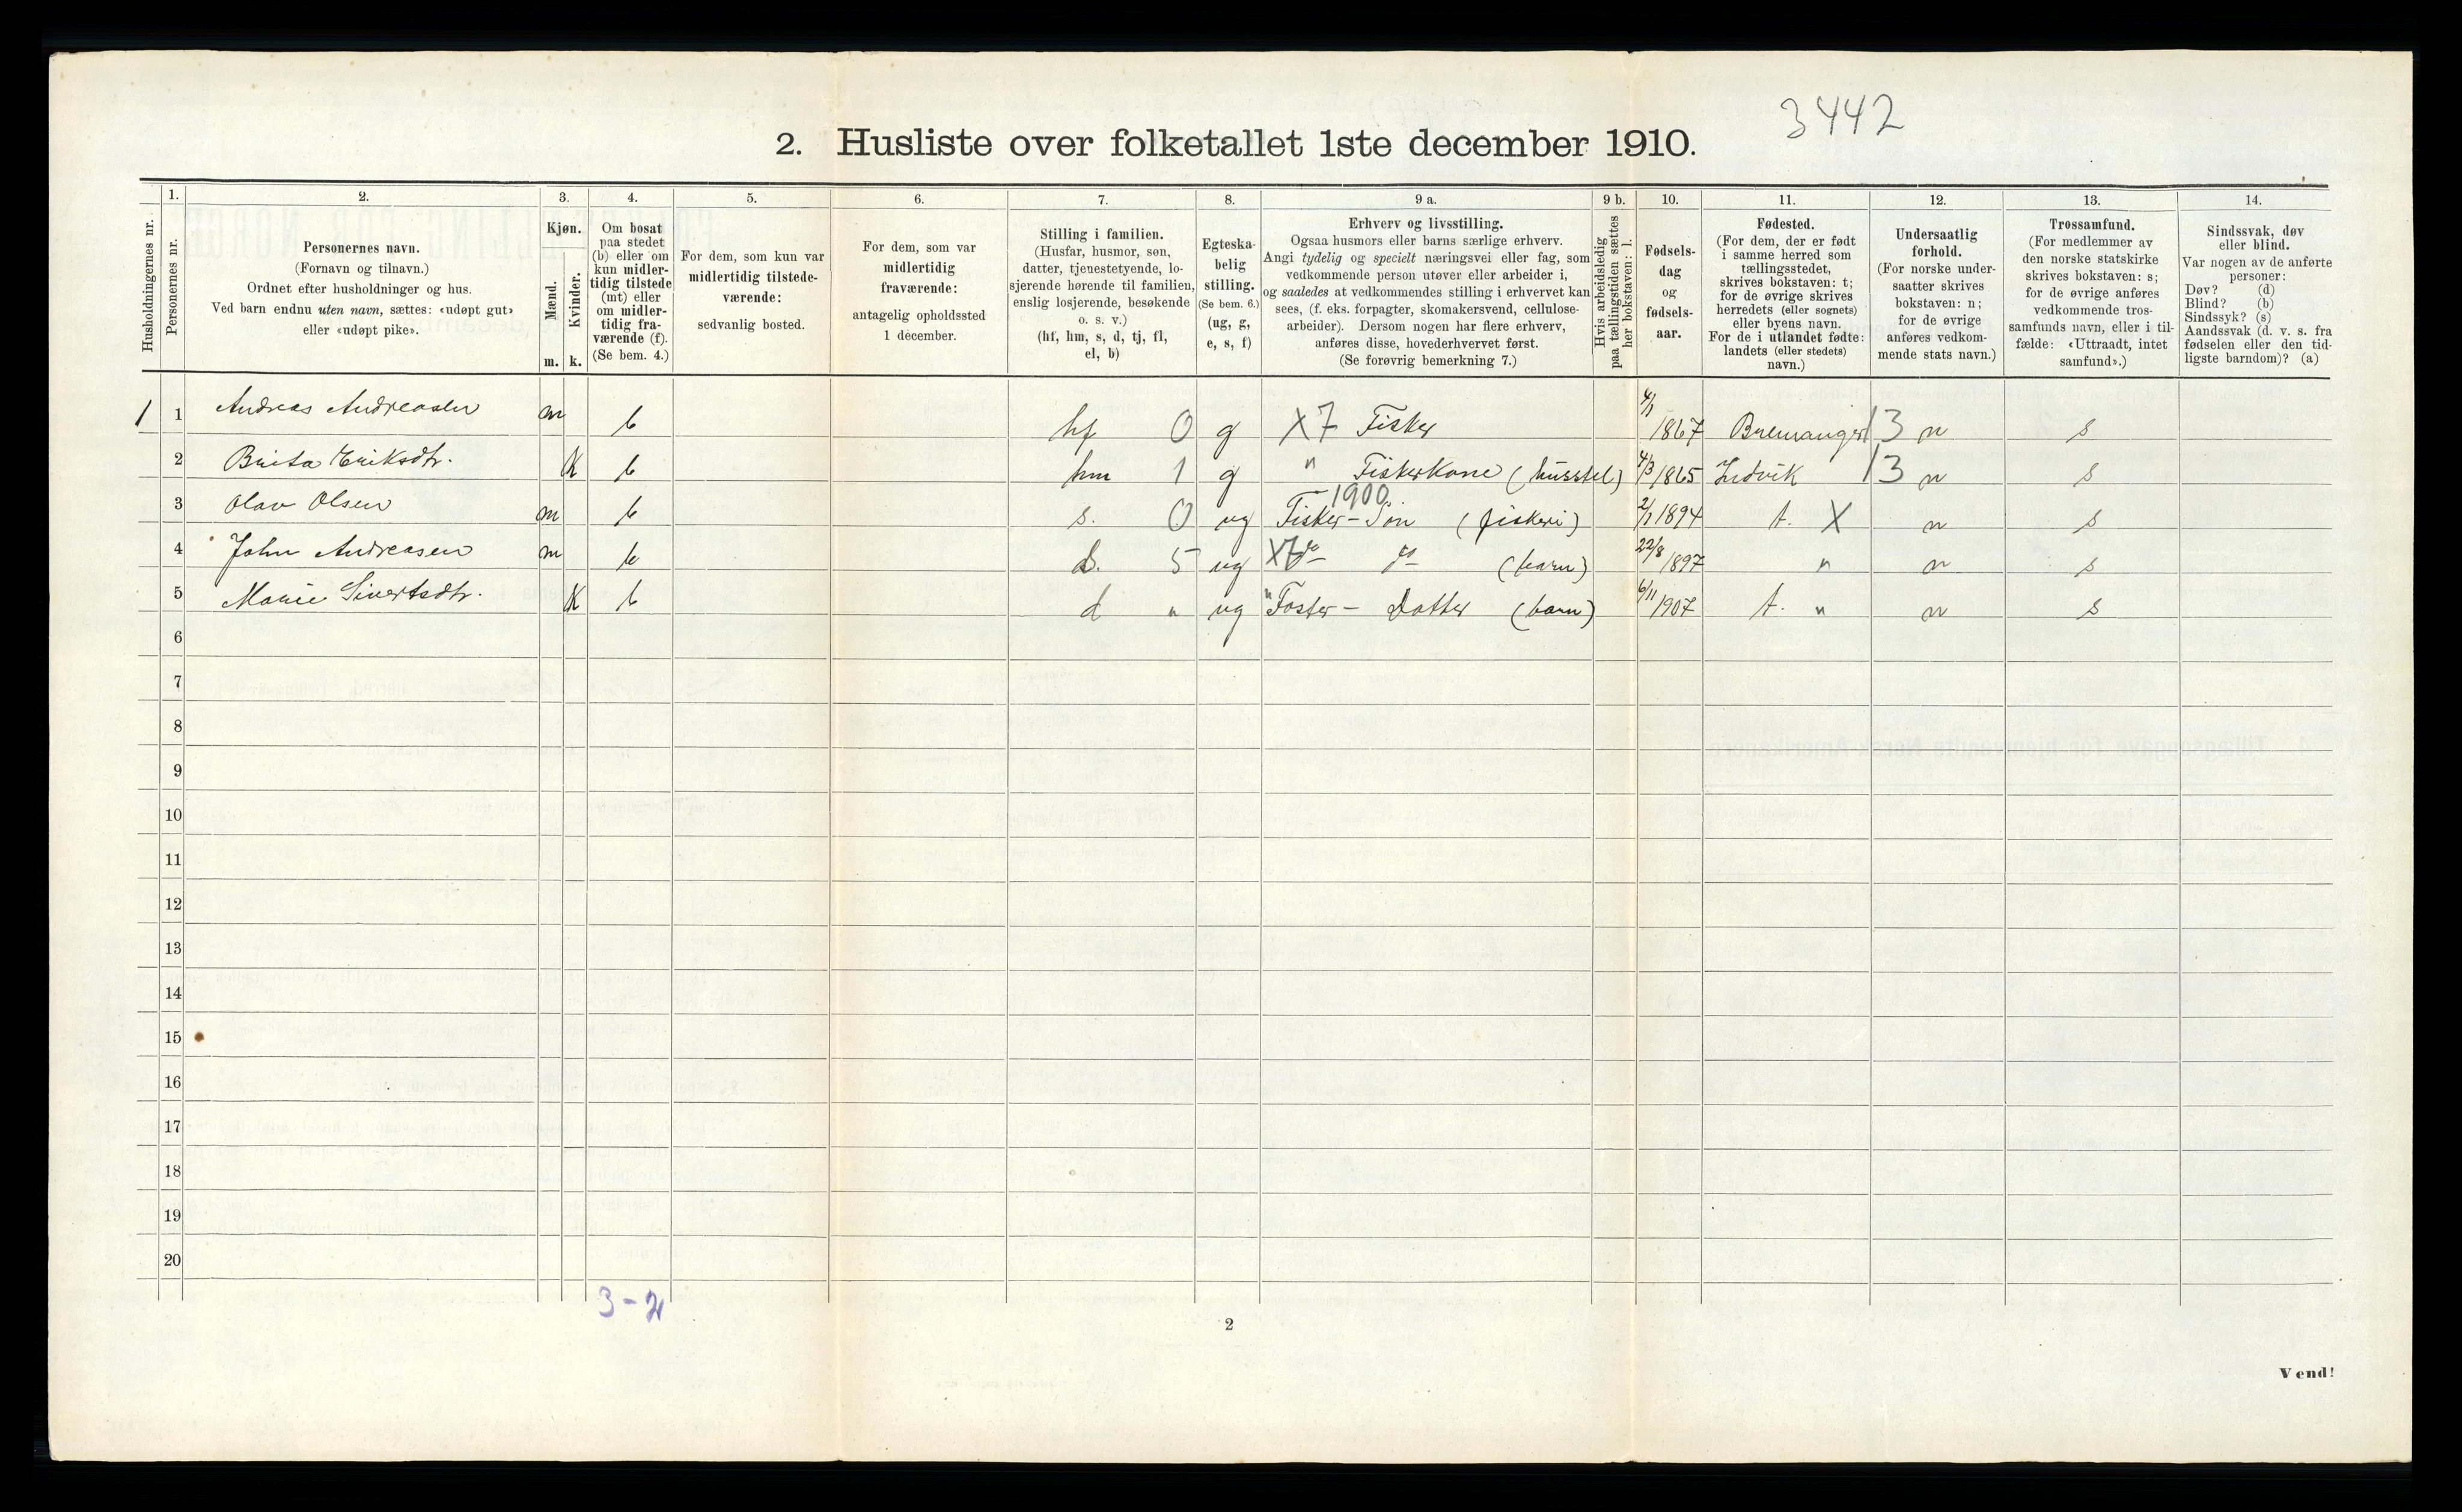 3442
2. Husliste over folketallet 1ste december 1910.
Husholdningernes nr.
1.
Personernes nr.
2.
Personernes navn.
(Fornavn og tilnavn.)
Ordnet efter husholdninger og hus.
Ved barn endnu uten navn, sættes: «udøpt gut»
eller «udøpt pike».
3.
Kjøn.
Mænd.
Kvinder.
m. k.
4.
Om bosat
paa stedet
(b) eller om
kun midler-
tidig tilstede
(mt) eller
om midler-
tidig fra-
værende (f).
(Se bem. 4.)
5.
For dem, som kun var
midlertidig tilstede-
værende:
sedvanlig bosted.
6.
For dem, som var
midlertidig
fraværende:
antagelig opholdssted
1 december.
7.
Stilling i familien.
(Husfar, husmor, søn,
datter, tjenestetyende, lo-
sjerende hørende til familien,
enslig losjerende, besøkende
o. s. v.)
(hf, hm, s, d, tj, fl,
el, b)
8.
Egteska-
belig
stilling.
(Se bem. 6.)
(ug, g,
e, s, f)
9 a.
Erhverv og livsstilling.
Ogsaa husmors eller barns særlige erhverv.
Angi tydelig og specielt næringsvei eller fag, som
vedkommende person utøver eller arbeider i,
og saaledes at vedkommendes stilling i erhvervet kan
sees, (f. eks. forpagter, skomakersvend, cellulose-
arbeider). Dersom nogen har flere erhverv,
anføres disse, hovederhvervet først.
(Se forøvrig bemerkning 7.)
9 b.
Hvis arbeidsledig
paa tællingstiden sættes
her bokstaven: l.
10.
Fødsels-
dag
og
fødsels-
aar.
11.
Fødested.
(For dem, der er født
i samme herred som
tællingsstedet,
skrives bokstaven: t;
for de øvrige skrives
herredets (eller sognets)
eller byens navn.
For de i utlandet fødte:
landets (eller stedets)
navn.)
12.
Undersaatlig
forhold.
(For norske under-
saatter skrives
bokstaven: n;
for de øvrige
anføres vedkom-
mende stats navn.)
13.
Trossamfund.
(For medlemmer av
den norske statskirke
skrives bokstaven: s;
for de øvrige anføres
vedkommende tros-
samfunds navn, eller i til-
fælde: «Uttraadt, intet
samfund».)
14.
Sindssvak, døv
eller blind.
Var nogen av de anførte
personer:
Døv? (d)
Blind? (b)
Sindssyk? (s)
Aandssvak (d. v. s. fra
fødselen eller den tid-
ligste barndom)? (a)
1 1 Andreas Andreasen m b hf 0 g X7 Fisker 4/1 1867 Bremanger 13 n s
2 Brita Eriksdtr. K b hm 1 g " Fiskerkone (husstel) 4/3 1865 Indvik 13 n s
1900
3 Olav Olsen m b s. 0 ug Fisker-Søn (fiskeri) 2/1 1894 t. X n s
4 John Andreasen m b s. 5 ug X7 do do (barn) 22/8 1897 " n s
5 Marie Sivertsdtr. K b d " ug " Foster- Datter (barn) 6/11 1907 t. " n s
6
7
8
9
10
11
12
13
14
15
16
17
18
19
20
3-2
2
Vend!